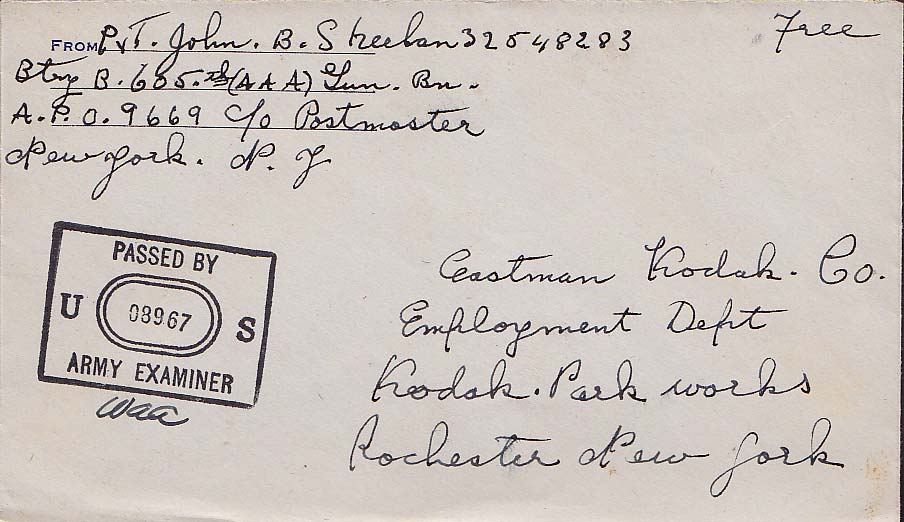 FROM Pvt. John. B. Streeban 32548283
Free
Btry B. 605.th (AAA) Gun. Bn.
A.P.O. 9669 c/o Postmaster
New York. N. Y
PASSED BY
U 08967 S
ARMY EXAMINER
Eastman Kodak. Co.
Employment Dept
Kodak. Park works
Rochester New York